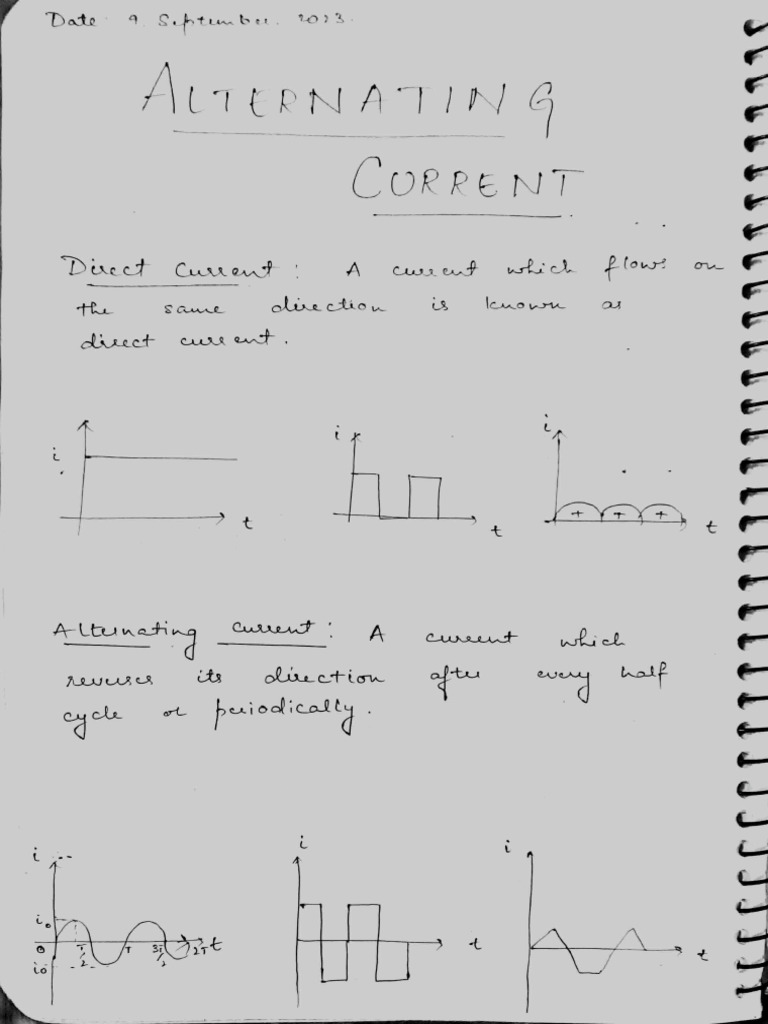 Date 9 September. 2023.
ALTERNATING
CURRENT
Direct Current : A current which flows on
the same direction is known as
direct current.
i
t
i
t
i
+ + +
t
Alternating current : A current which
reverses its direction after every half
cycle or periodically.
i
i₀
0 T/2 T 3T/2 2T t
i₀
i
t
i
t